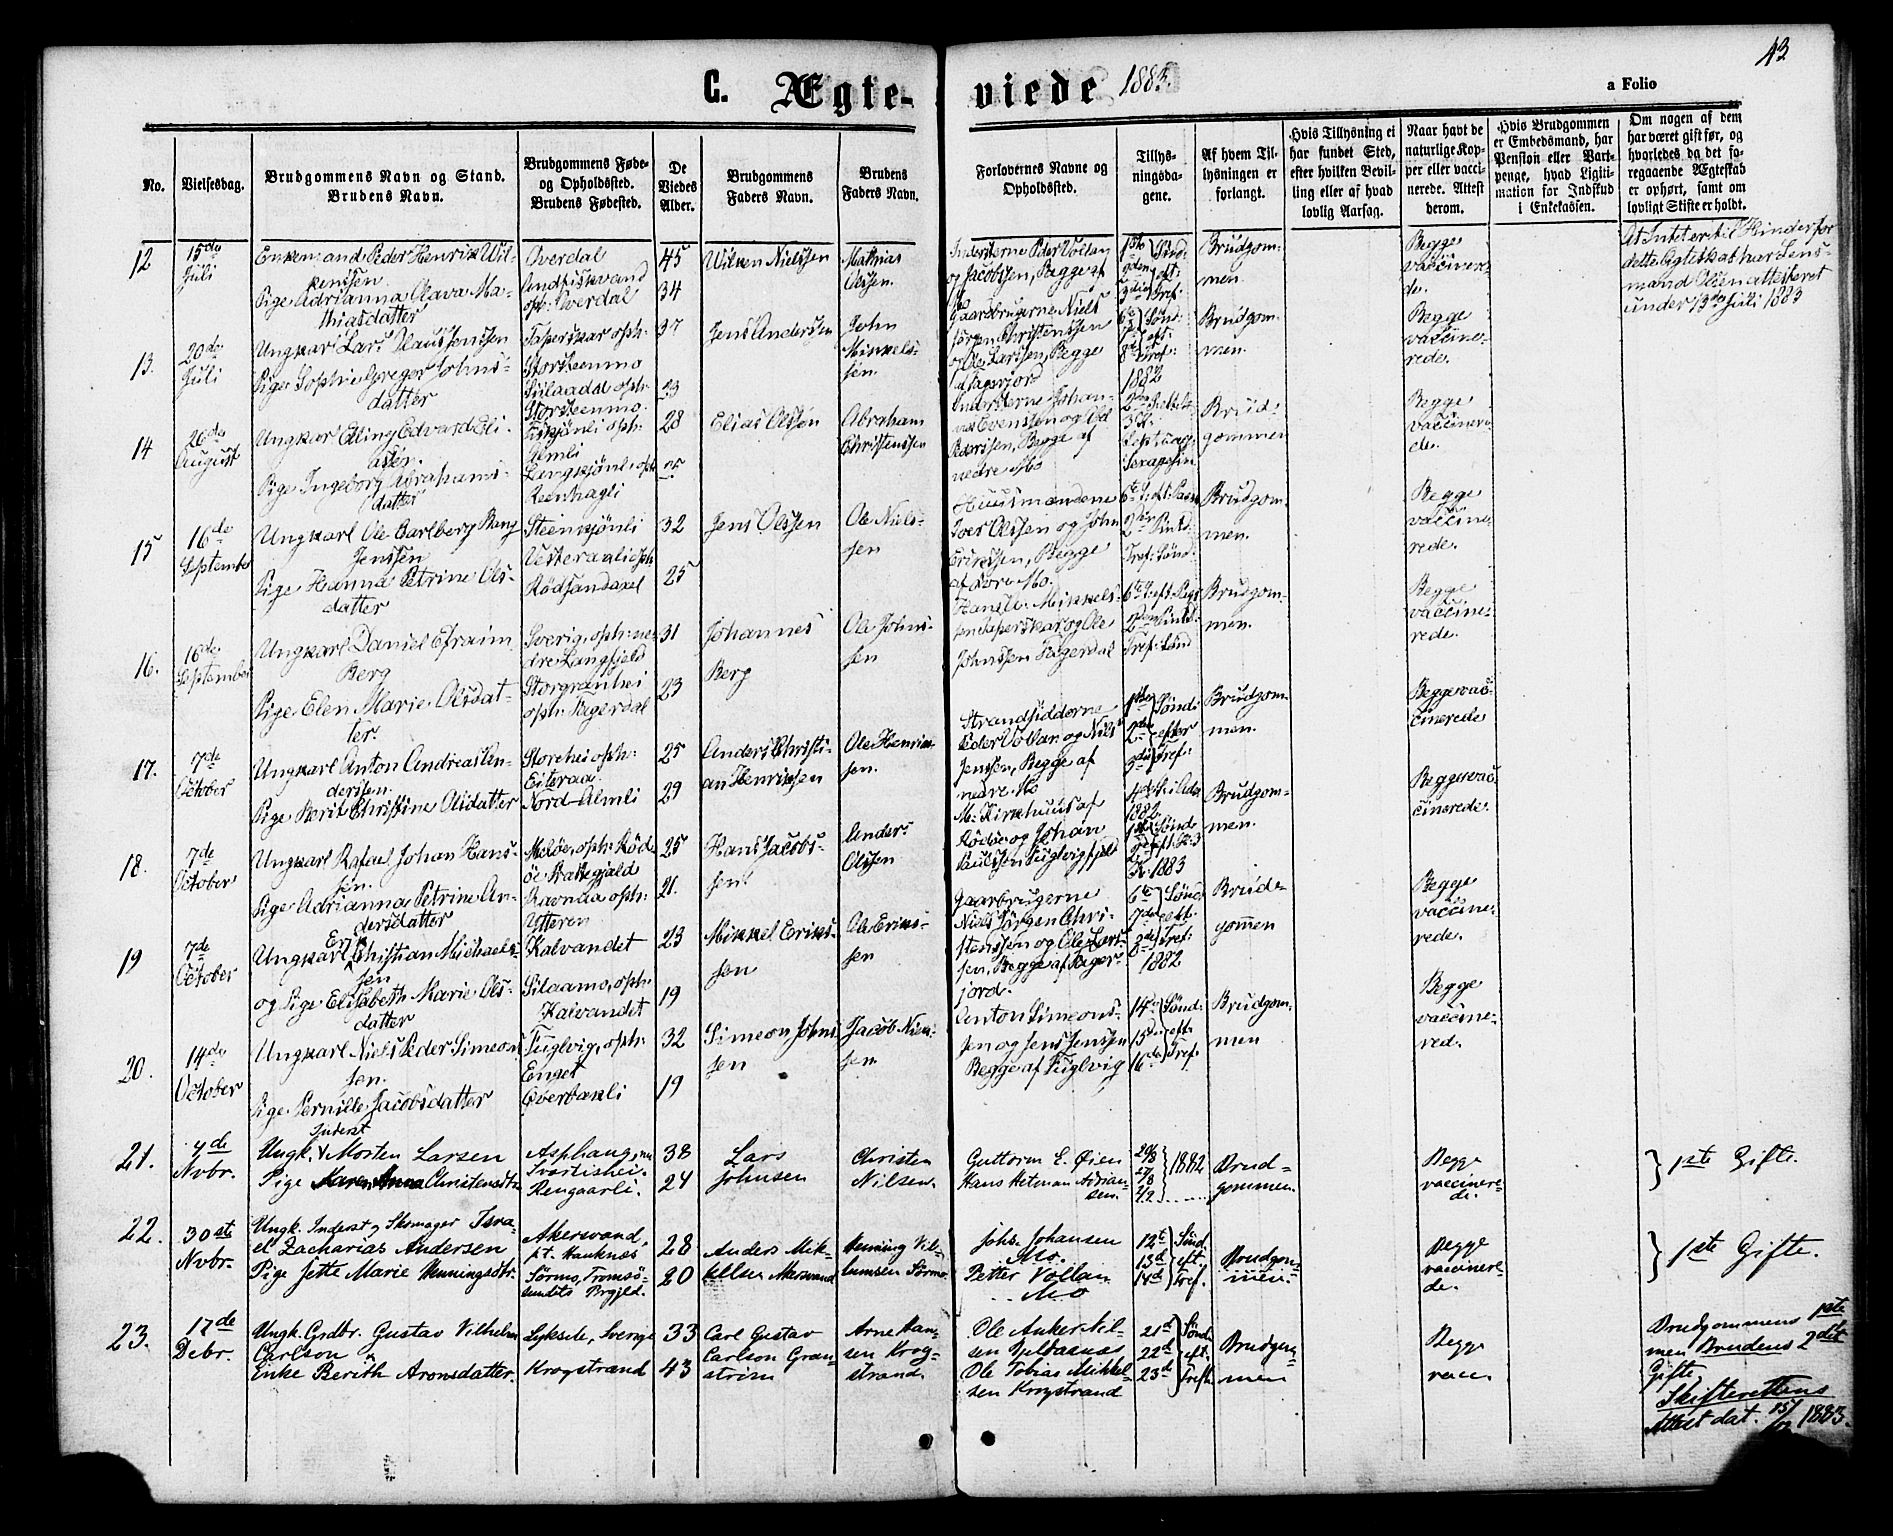 43
C. Ægte-viede 1883.
a Folio
No.
Vielsesdag.
Brudgommens Navn og Stand.
Brudens Navn.
Brudgommens Føde-
og Opholdssted.
Brudens Fødested.
De
Viedes
Alder.
Brudgommens
Faders Navn.
Brudens
Faders Navn.
Forlovernes Navne og
Opholdssted.
Tillys-
ningsda-
gene.
Af hvem Til-
lysningen er
forlangt.
Hvis Tillysning ei
har fundet Sted,
efter hvilken Bevil-
ling eller af hvad
lovlig Aarsag.
Naar havt de
naturlige Kop-
per eller vacci-
nerede. Attest
derom.
Hvis Brudgommen
er Embedsmand, har
Pension eller Vart-
penge, hvad Ligiti-
mation for Indskud
i Enkekassen.
Om nogen af dem
har været gift før, og
hvorledes da det fo-
regaaende Ægteskab
er ophørt, samt om
lovligt Skifte er holdt.
12
15de
Juli
Enkemand Peder Henrik Wil-
kenssen
Pige Adrianna Olava Ma-
thiasdatter
Overdal
Andfiskvand
oph: Overdal
45
34
Wilken Nielssen
Mathias
Olssen.
Indersterne Peder Vollan
og Jacobsen, Begge af
Mo
1ste
2den
3die
Sønd:
eft:
Tref:
Brudgom-
men.
Begge
vaccinere-
de.
At Intet er til Hinder for
dette Ægteskab har Lens-
mand Olsen attesteret
under 13de Juli 1883
13.
20de
Juli
Ungkarl Lars Klaus Jenssen
Pige Sophie Gregor Johns-
datter
Taperskar oph:
Storsteenmo
Storsteenmo.
37
23
Jens Anderssen
John
Mikkels-
sen.
Gaardbrugerne Niels
Jörgen Christenssen
og Ole Larssen, Begge
af Fagerjord
Sønd:
eft:
Tref:
1882
Brudgom-
men.
Begge
vaccine-
rede.
14
26de
August
Ungkarl Elling Edvard Eli-
assen.
Pige Ingeborg Abrahams-
datter
Almli
28
25
Elias Olssen
Abraham
Christenssen
Inderstene Johan-
nes Evenssen og Ed
Pederssen, Begge af
nedre Mo
Brud-
gommen
Begge
vaccinere-
de.
15
16de
September
Ungkarl Ole Carlberg Bang
Jenssen
Pige Hanna Petrine Ols-
datter
Steinkjönli
Vesteraali oph
Rödsandaxel
32
25
Jens Olssen
Ole Niels-
sen
Huusmændene
Iver Olssen og John
Erikssen, Begge
af Nore Mo.
Tref: Sønd:
Brudgom-
men.
Begge
vaccine-
rede.
16.
16de
September
Ungkarl Daniel Efraim
Berg
Pige Elen Marie Olsdat-
ter.
Sverig, oph: ne-
dre Langfjeld
Storgranhei
oph: Fagerdal
31
23
Johannes
Berg
Ole Johns-
sen
Mikkels-
sen Taperskar og Ole
Johnssen Fagerdal
Tref: Sønd
Brudgom-
men.
Begge
vaccine-
rede.
17.
7de
October
Ungkarl Anton Andreas An-
derssen.
Pige Berit Christine Olsdatter
Storehei oph:
Eiteraa.
Nord-Almli
25
29
Anders Christi-
an Henrikssen
Ole Henrik-
sen.
Strandsidderne
Peder Vollan og Niels
Jenssen, Begge af
nedre Mo
1ste
2den
3die
Sønd:
efter
Tref:
Brudgom-
men.
Begge vac-
cinerede
18.
7de
October
Ungkarl Rafael Johan Hans-
sen.
Pige Adrianna Petrine An-
dersdatter
Meløe, oph: Röd-
öe Præstegjæld
Ravnaa oph:
Ytteren
25
21.
Hans Jacobs-
sen.
Anders
Olssen
M. Kirkhuus af
Rödöe og Johan
Paulssen Fuglvigfjeld
1882
1883
Brudgom-
men.
Begge vac-
cinerede.
19
7de
October
Ungkarl Erik Christian Michaels-
sen
og Pige Elisabeth Marie Ols-
datter
Kalvandet
Silaamo, oph:
Kalvandet
23
19
Mikkel Eriks-
sen
Ole Eriks-
sen
Gaarbrugerne
Niels Jörgen Chri-
stenssen og Ole Lars-
sen, Begge af Fager-
jord.
6te
7de
Sønd
eft.
Tref:
1882
Brud-
gommen
Begge
vaccine-
rede.
20.
14de
October
Ungkarl Niels Peder Simeon-
sen.
Pige Pernille Jacobsdatter
Fuglvig, oph:
Enget
Overtverli
32
19
Simeon Johns
sen
Jacob Niel-
sen
Anton Simeons-
sen og Jens Jenssen
Begge af Fuglvig
14de
15de
16de
Sønd:
eft.
Tref:
Brudgom-
men
Begge
vaccine-
red.
21.
4de
Nvbr.
Inderst
Ungk. Morten Larsen
Pige Karen Anna Christensdtr.
Asphaug, nu
Svartishei.
Rengaarli.
38
24
Lars
Johnsen
Christen
Nilsen.
Guttorm E. Øien
Hans Heteman Adrian-
sen.
20/8
27/8
1882
Brud-
gommen.
Begge
vaccinere-
de.
1ste Gifte.
22.
30st
Nvbr.
Ungk. Inderst og Skomager Isra-
el Zacharias Andersen
Pige Jette Marie Henningsdtr.
Akersvand,
pt. Hauknæs
Sörmo, Tromsö-
sundets Prgjld.
28
20
Anders Mik-
kelsen Akersvand
Henning Vil-
lumsen Sörmo.
Johs. Johansen
Mo.
Petter Vollan
Mo
12te
13d
14d
Sönd.
eft.
Tref.
Brudgom-
men.
Begge
vaccinere-
de.
1ste Gifte.
23.
17de
Debr.
Ungk. Grdbr. Gustav Vilhelm
Carlson
Enke Berith Aronsdatter.
Lyksele, Sverige
Krogstrand
33
43
Carl Gustav
Carlson Gran-
ström
Arne Han-
sen Krog-
strand.
Ole Anker Nil-
sen Hjeldasnæs
Ole Tobias Mikkel-
sen Krogstrand
21d
22d
23d
Sönd.
eft.
Trefh.
Brudgom-
men
Begge
vacc.
Brudgommens 1ste
men Brudens 2det
Gifte
Skifterettens
Attest dat. 15/12 1883.